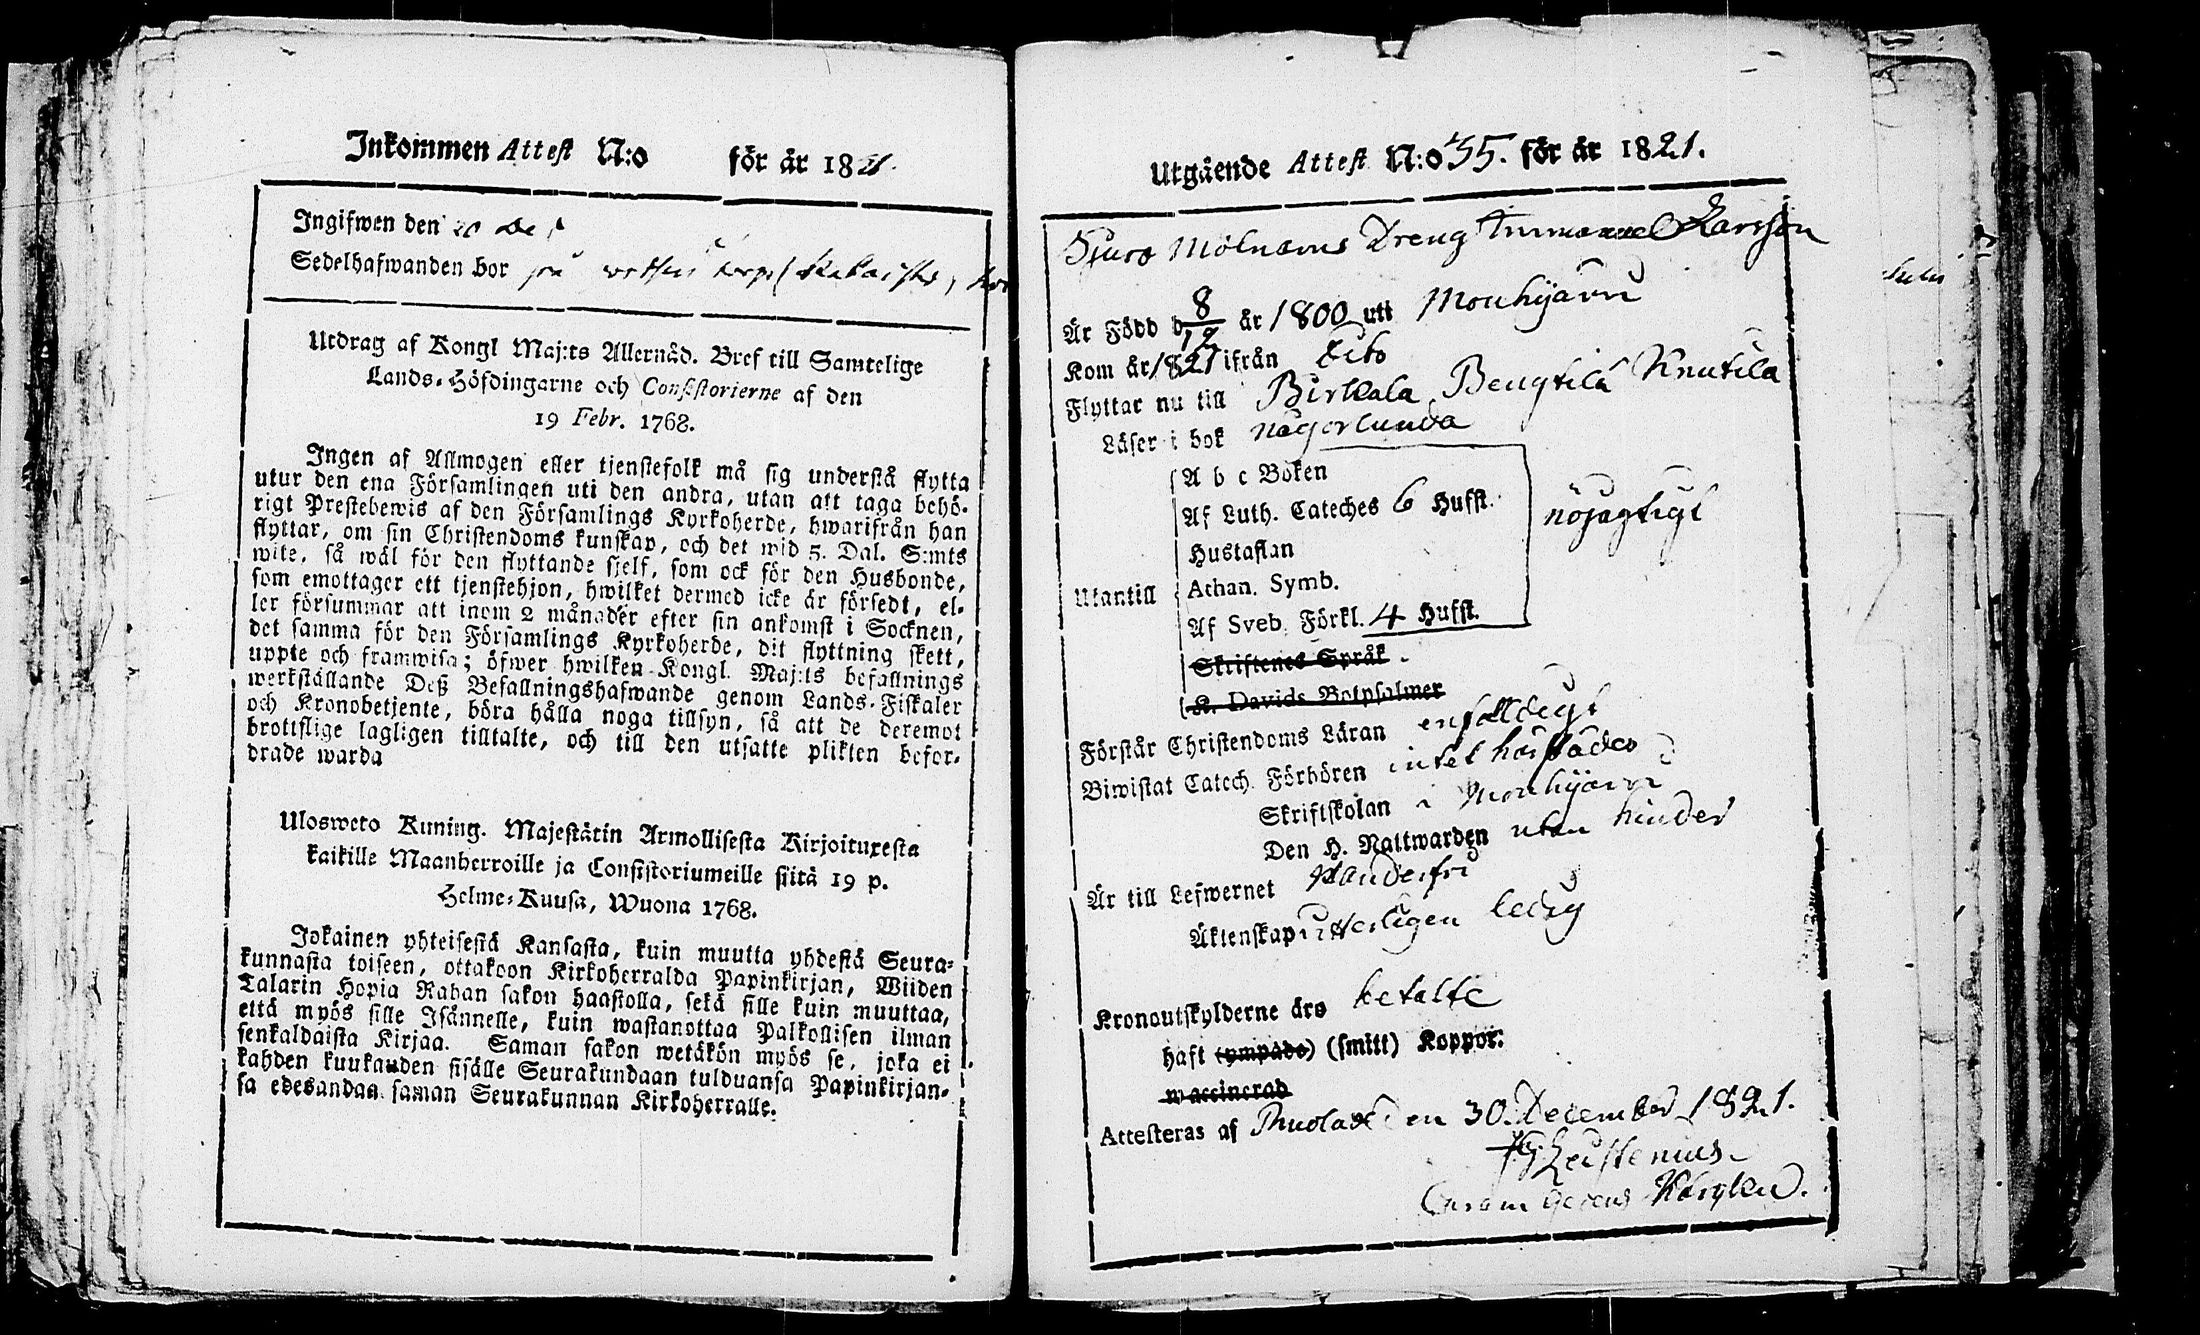 Inkommen Attest N:o för år 1821.
Ingifwen den 20 De
Sedelhafwanden bor på
Utdrag af Kongl Maj:ts Allernåd. Bref till Samtelige
Lands-Höfdingarne och Consistorierne af den
19 Febr. 1768.
Ingen af Allmogen eller tjenstefolk må sig understå flytta
utur den ena Församlingen uti den andra, utan att taga behö-
rigt Prestebewis af den Församlings Kyrkoherde, hwarifrån han
flyttar, om sin Christendoms kunskap, och det wid 5. Dal. S:mts
wite, så wäl för den flyttande sjelf, som ock för den Husbonde,
som emottager ett tjenstehjon, hwilket dermed icke är försedt, el-
ler försummar att inom 2 månader efter sin ankomst i Socknen,
det samma för den Församlings Kyrkoherde, dit flyttning skett,
uppte och framwisa; öfwer hwilken Kongl. Maj:ts befallnings
werkställande Deß Befallningshafwande genom Lands-Fiskaler
och Kronobetjente, böra hålla noga tillsyn, så att de deremot
brottslige lagligen tilltalte, och till den utsatte plikten befor-
drade warda
Ulosweto Kuning. Majestätin Armollisesta Kirjoituxesta
kaikille Maanherroille ja Consistoriumeille siitä 19 p.
Helme-Kuusa, Wuona 1768.
Jokainen yhteisestä Kansasta, kuin muutta yhdestä Seura-
kunnasta toiseen, ottakoon Kirkoherralda Papinkirjan, Wiiden
Talarin Hopia Rahan sakon haastolla, sekä sille kuin muuttaa,
että myös sille Isännelle, kuin wastanottaa Palkollisen ilman
senkaldaista Kirjaa. Saman sakon wetäkön myös se, joka ei
kahden kuukauden sisälle Seurakundaan tulduansa Papinkirjan-
sa edesandaa saman Seurakunnan Kirkoherralle.
Utgående Attest N:o 35. för år 1821.
Mölnarns Dreng Immanuel Larsson
Är Född d 8/12 år 1800 uti Mouhijärvi
Kom år 1821 ifrån dito
Flyttar nu till Birkala Bengtilä Knutila
Läser i bok någorlunda
A b c Boken
Af Luth. Cateches 6 Hufst.
nöjagtigt
Hustaflan
Utantill
Athan. Symb.
Af Sveb. Förkl. 4 Hufst.
Skriftenes Språk
K. Davids Botpsalmer
Förstår Christendoms Läran enfaldigt
Biwistat Catech. Förhören intet härstädes
Skriftskolan i Mouhijärvi
Den H. Nattwarden utan hinder
Är till Lefwernet klanderfri
Äktenskap witterligen ledig
Kronoutskylderne äro betalte
haft (ympade) (smitt) Koppor.
waccinerad
Attesteras af den 30. December 1821.